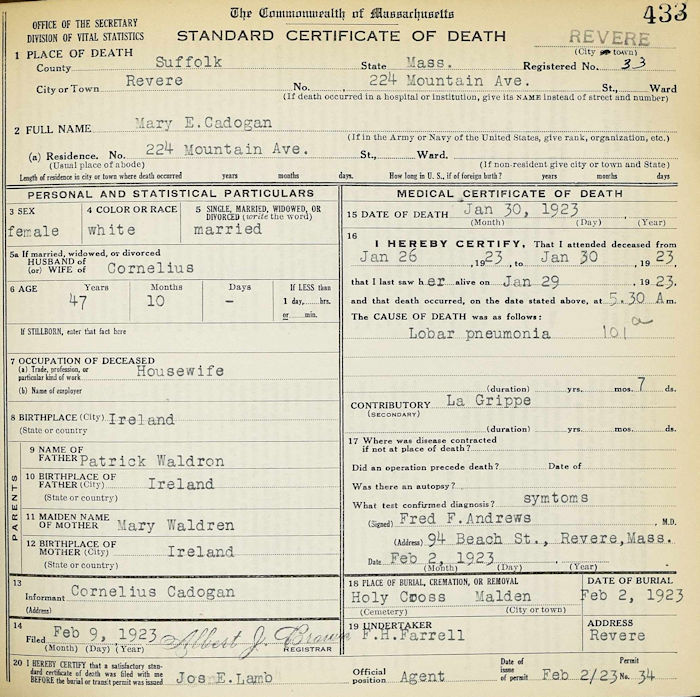 The Commonwealth of Massachusetts
433
OFFICE OF THE SECRETARY
DIVISION OF VITAL STATISTICS
STANDARD CERTIFICATE OF DEATH
REVERE
(City or town)
1 PLACE OF DEATH
County Suffolk State Mass. Registered No. 33
City or Town Revere No. 224 Mountain Ave. St., Ward
(If death occurred in a hospital or institution, give its NAME instead of street and number)
2 FULL NAME Mary E.Cadogan
(If in the Army or Navy of the United States, give rank, organization, etc.)
(a) Residence. No. 224 Mountain Ave. St., Ward.
(Usual place of abode) (If non-resident give city or town and State)
Length of residence in city or town where death occurred years months days. How long in U. S., if of foreign birth? years months days
PERSONAL AND STATISTICAL PARTICULARS
3 SEX
female
4 COLOR OR RACE
white
5 SINGLE, MARRIED, WIDOWED, OR
DIVORCED (write the word)
married
5a If married, widowed, or divorced
HUSBAND of
(or) WIFE of Cornelius
6 AGE Years Months Days If LESS than
47 10 - 1 day,....hrs.
or....min.
If STILLBORN, enter that fact here
7 OCCUPATION OF DECEASED
(a) Trade, profession, or
particular kind of work Housewife
(b) Name of employer
8 BIRTHPLACE (City) Ireland
(State or country)
PARENTS
9 NAME OF
FATHER Patrick Waldron
10 BIRTHPLACE OF
FATHER (City) Ireland
(State or country)
11 MAIDEN NAME
OF MOTHER Mary Waldren
12 BIRTHPLACE OF
MOTHER (City) Ireland
(State or country)
13
Informant Cornelius Cadogan
(Address)
14
Filed Feb 9, 1923 Albert J. Brown
(Month) (Day) (Year) REGISTRAR
MEDICAL CERTIFICATE OF DEATH
15 DATE OF DEATH Jan 30, 1923
(Month) (Day) (Year)
16
I HEREBY CERTIFY, That I attended deceased from
Jan 26, 1923, to Jan 30, 1923
that I last saw her alive on Jan 29, 1923.
and that death occurred, on the date stated above, at 5.30 Am.
The CAUSE OF DEATH was as follows:
Lobar pneumonia 101a
(duration) yrs. mos. 7 ds.
CONTRIBUTORY La Grippe
(SECONDARY)
(duration) yrs. mos. ds.
17 Where was disease contracted
if not at place of death?
Did an operation precede death? Date of
Was there an autopsy?
What test confirmed diagnosis? symtoms
(Signed) Fred F.Andrews, M.D.
(Address) 94 Beach St., Revere,Mass.
Date Feb 2, 1923
(Month) (Day) (Year)
18 PLACE OF BURIAL, CREMATION, OR REMOVAL
Holy Cross Malden
(Cemetery) (City or town)
DATE OF BURIAL
Feb 2, 1923
19 UNDERTAKER
F.H.Farrell
ADDRESS
Revere
20 I HEREBY CERTIFY that a satisfactory stan-
dard certificate of death was filed with me
BEFORE the burial or transit permit was issued Jos E.Lamb
Official
position Agent
Date of
issue
of permit Feb 2/23
Permit
No. 34